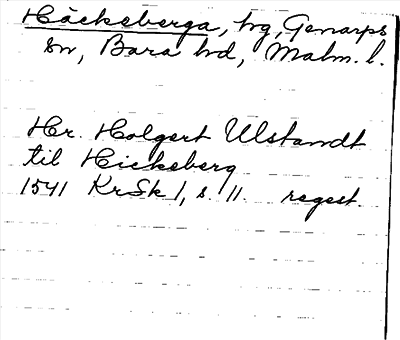 Häckeberga, hrg, Genarps
sn, Bara hd, Malm. l.
Hr. Holgert Ulstandt
til Hickeberg
1541 KrSk 1, s. 11. regest.